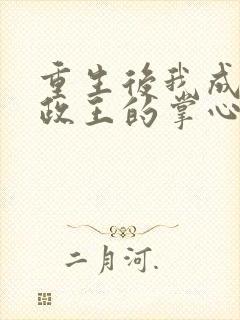 重生後我成
政王的掌心
二月河.